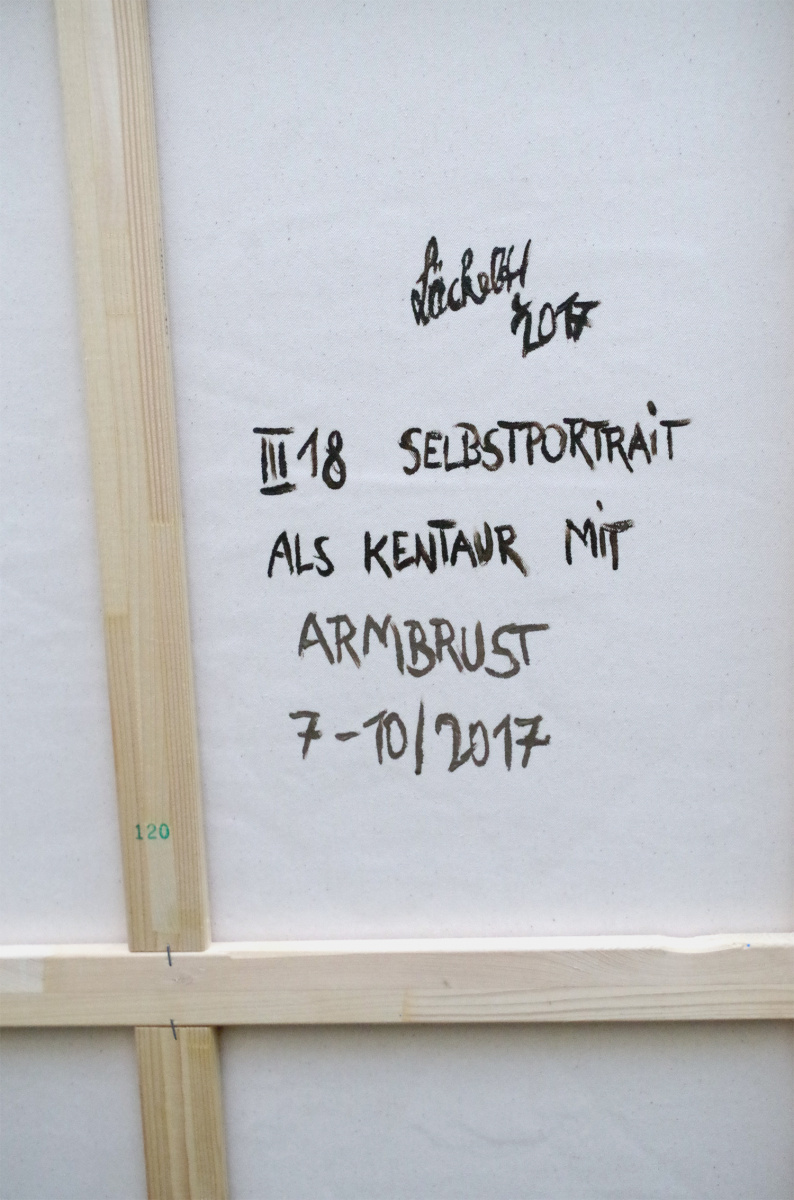 2017
III 18 SELBSTPORTRAiT
ALS KENTAUR MiT
ARMBRUST
7-10/2017
120